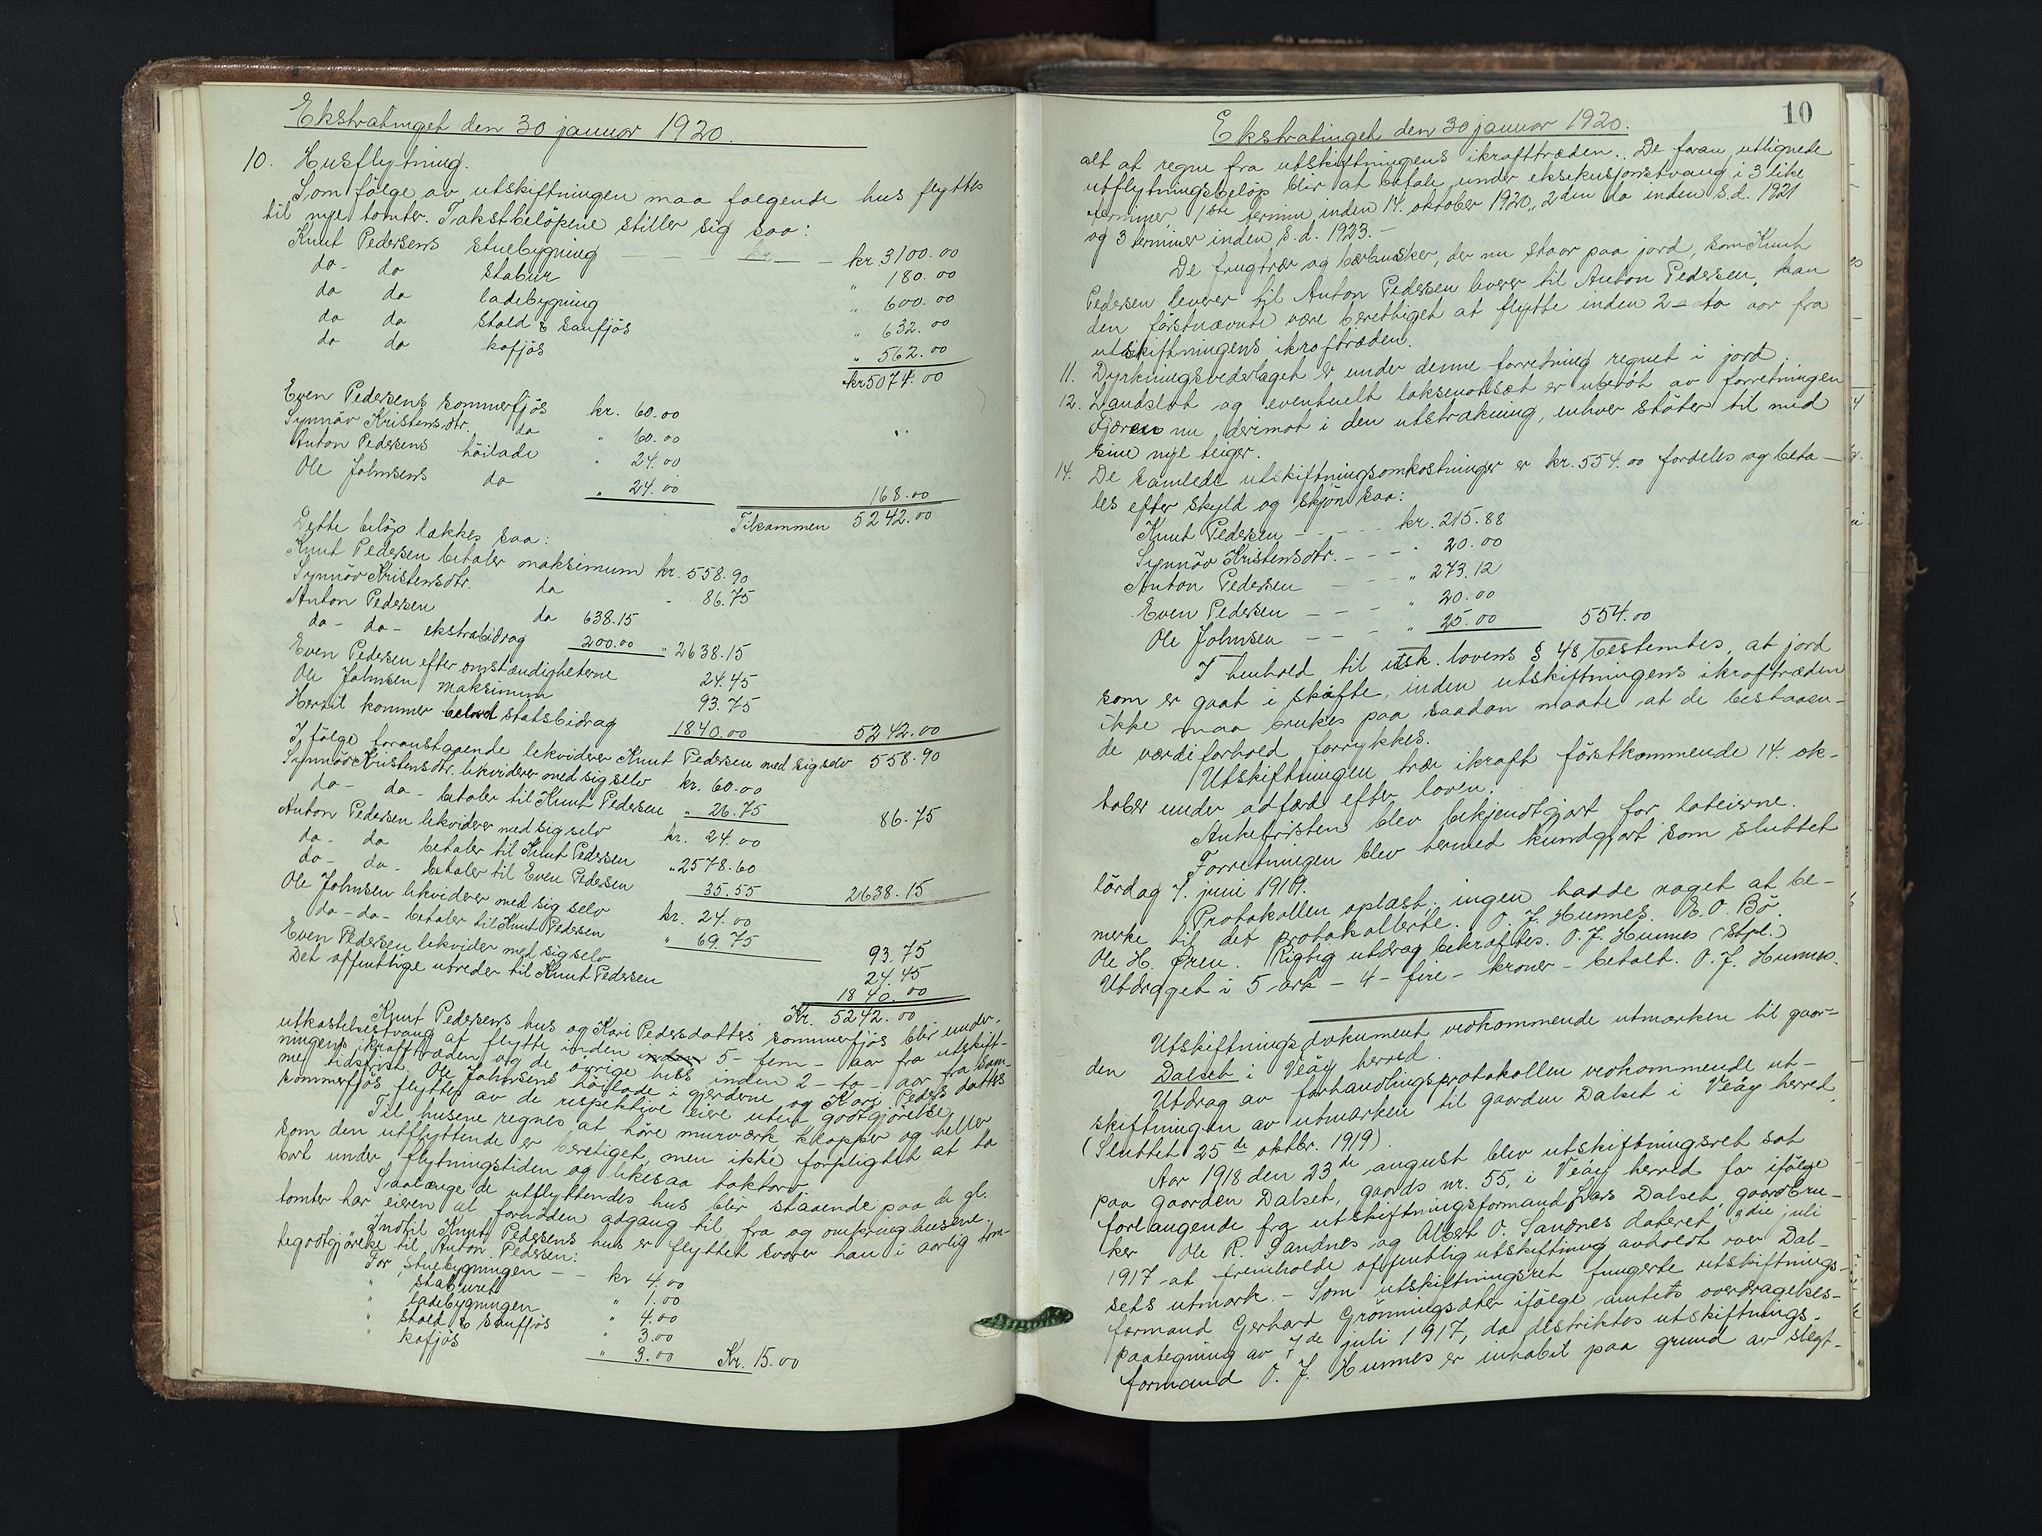 Ekstratinget den 30 januar 1920.
10. Husflytning.
Som følge av utskiftningen maa følgende hus flyttes
til nye tomter. Takstbeløpene stiller sig saa:
Knut Pedersens stuebygning — — kr. — — kr. 3100.00
do- do stabur " 180.00
do do ladebygning " 600.00
do do stald & saufjøs " 632.00
do do kofjøs " 562.00
kr 5074.00
Even Pedersens sommerfjøs kr. 60.00
Synnöv Kristensdtr. do " 60.00
Anton Pedersens höilade " 24.00
Ole Johnsens do " 24.00 168.00
Tilsammen 5242.00
Dette beløp dækkes saa:
Knut Pedersen betaler maksimum kr. 558.90
Synnöv Kristensdtr. do " 86.75
Anton Pedersen do 638.15
do- do- ekstrabidrag 200.00 " 2638.15
Even Pedersen efter omstændigheterne 24.45
Ole Johnsen maksimum 93.75
Hertil kommer statsbidrag 1840.00 5242.00
I følge foranstaaende likviderer Knut Pedersen med sig selv 558.90
Synnöv Kristensdtr. likviderer med sig selv kr. 60.00
do- do- betaler til Knut Pedersen " 26.75 86.75
Anton Pedersen likviderer med sig selv kr. 24.00
do- do betaler til Knut Pedersen " 2578.60
do- do- betaler til Even Pedersen 35.55 2638.15
Ole Johnsen likviderer med sig selv kr. 24.00
do-do- betaler til Knut Pedersen " 69.75 93.75
Even Pedersen likvider med sig selv 24.45
Det offentlige utreder til Knut Pedersen 1840.00
Kr. 5242.00
Knut Pedersens hus og Kari Pedersdatters sommerfjøs blir under
utkastelsestvang at flytte inden 5- fem- aar fra utskift-
ningens ikrafttræden og de øvrige hus inden 2- to- aar fra sam-
me tidsfrist. Ole Johnsens höilade i gjerdene og Kari Peders datters
sommerfjøs flyttes av de respektive eiere uten godtgjørelse.
Til husene regnes at høre murværk, klopper og heller
som den utflyttende er berettiget, men ikke forpligtet at ta
bort under flytningstiden og likesaa taktorv.
Saalænge de utflyttendes hus blir staaende paa de gl.
tomter har eieren al fornøden adgang til, fra og omkring husene.
Indtil Knut Pedersens hus er flyttet svarer han i aarlig tom-
tegodtgjørelse til Anton Pedersen:
For stuebygningen — — kr 4.00
" staburet " 1.00
" ladebygningen " 4.00
" stald & saufjøs " 3.00
" kofjøs " 3.00 Kr. 15.00
10
Ekstratinget den 30 januar 1920.
alt at regne fra utskiftningens ikrafttræden. De foran utlignede
utflytningsbeløp blir at betale under eksekusjonstvang i 3 like
terminer 1ste termin inden 14. oktober 1920, 2den do inden s.d. 1921
og 3 terminer inden s.d. 1923.-
De frugttrær og bærbusker, der nu staar paa jord, som Knut
Pedersen leverer til Anton Pedersen, kan
den førstnævnte være berettiget at flytte inden 2- to aar fra
utskiftningens ikrafttræden.
11. Dyrkningsvederlaget er under denne forretning regnet i jord.
12. Landslot og eventuelt laksenotsæt er uberørt av forretningen
Fjæren nu, derimot i den utstrækning, enhver støter til med
sine nye teiger.
14. De samlede utskiftningsomkostninger er kr. 554.00 fordeles og beta-
les efter skyld og skjøn saa:
Knut Pedersen — — — kr. 215.88
Synnöv Kristensdtr. — — — " 20.00
Anton Pedersen — — — " 273.12
Even Pedersen — — — " 20.00
Ole Johnsen — — — " 25.00 554.00
I henhold til utsk. lovens § 48 bestemtes, at jord
som er gaat i skifte, inden utskiftningens ikraftræden
ikke maa brukes paa saadan maate at de bestaaen-
de værdiforhold forrykkes.
Utskiftningen træ ikraft førstkommende 14. ok-
tober under adfærd efter loven.
Ankefristen blev bekjendtgjort for loteierne.
Forretningen blev hermed kundgjort som sluttet
lørdag 7. juni 1919.
Protokollen oplæst, ingen hadde noget at be-
merke til det protokollerte. O. J. Hunnes. E. O. Bø.
Ole H. Øren. Rigtig utdrag bekræftes. O. J. Hunnes (Stpl.)
Utdraget i 5 ark - 4- fire- kroner- betalt. O. J. Hunnes.
Utskiftningsdokument vedkommende utmarken til gaar-
den Dalset i Veøy herred.
Utdrag av forhandlingsprotokollen vedkommende ut-
skiftningen av utmarken til gaarden Dalset i Veøy herred.
(Sluttet 25de oktbr. 1919).
Aar 1918 den 23de august blev utskiftningsret sat
paa gaarden Dalset, gaards nr. 55, i Veøy herred for ifølge
forlangende fra utskiftningsformand Lars Dalset, gaardbru-
ker Ole R. Sandnes og Albert O. Sandnes dateret 3die juli
1917 at fremholde offentlig utskiftning avholdt over Dal-
sets utmark.- Som utskiftningsret fungerte utskiftnings-
formand Gerhard Grønningsæter ifølge amtets overdragelses-
paategning av 7de juli 1917, da distriktes utskiftnings-
formand O. J. Hunnes er inhabil paa grund av slegt-